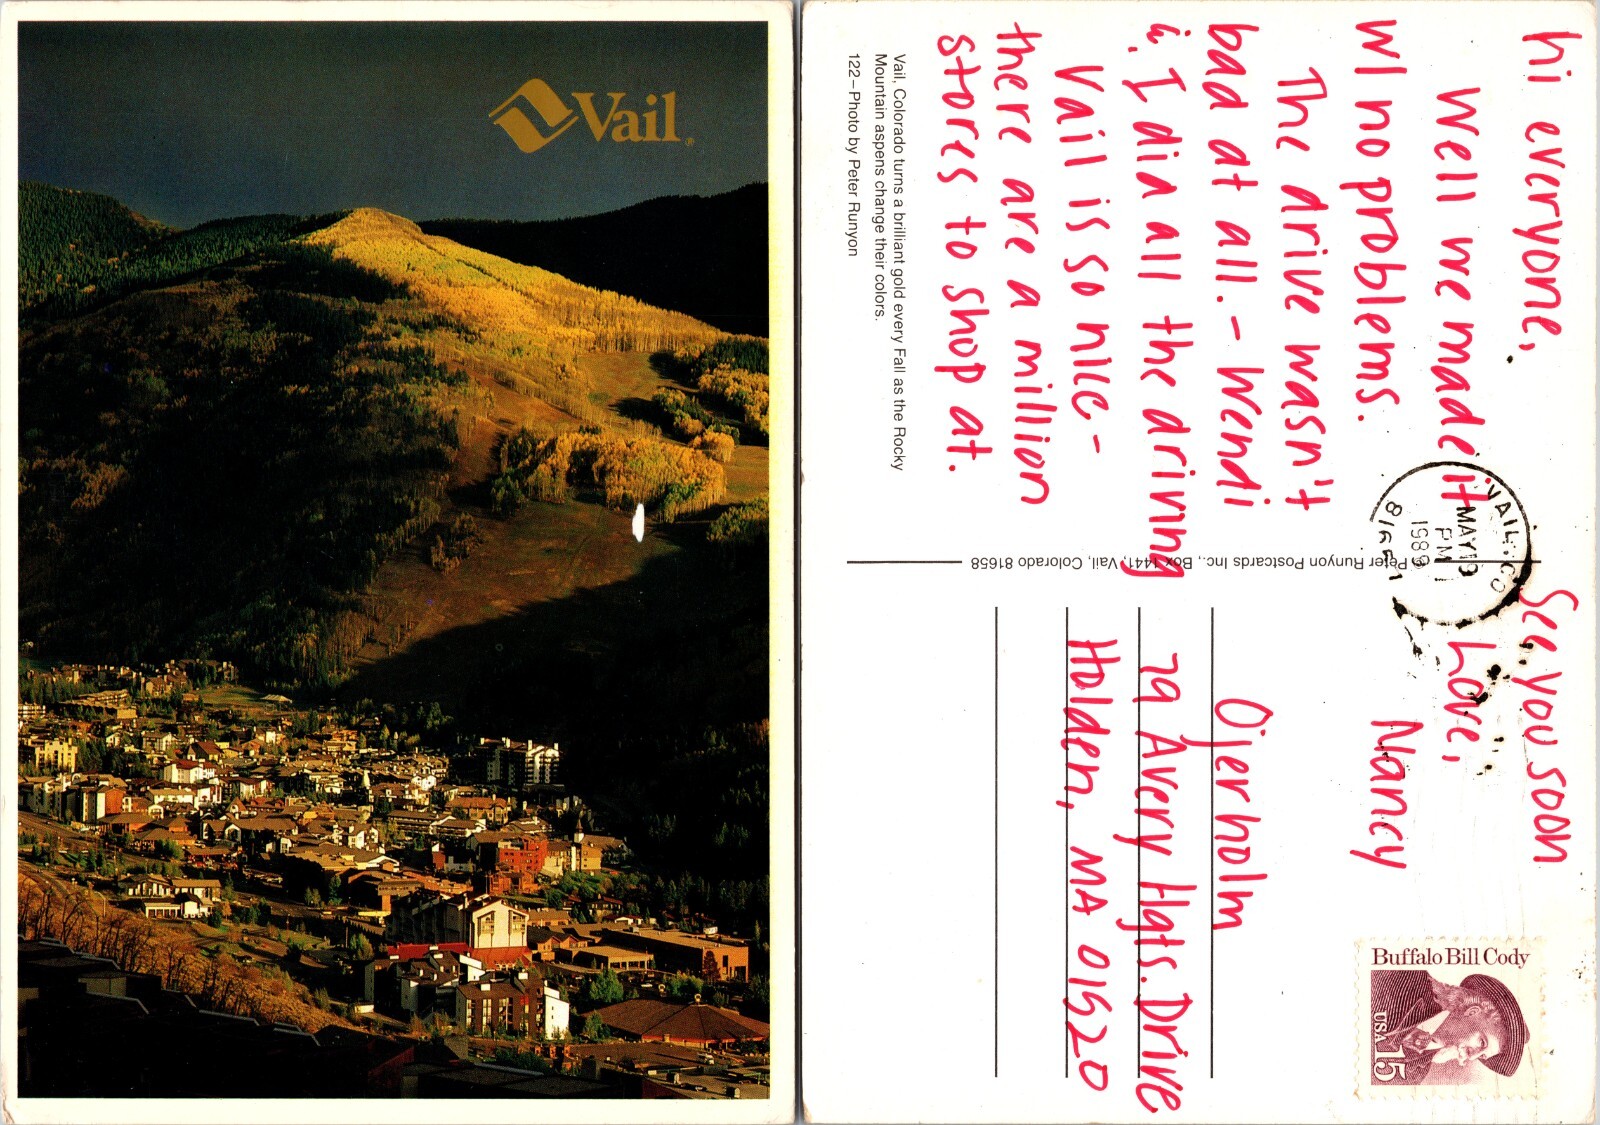 Vail®
hi everyone,
Well we made it
w/ no problems.
The drive wasn't
bad at all. - Wendi
& I did all the driving
Vail is so nice -
there are a million
stores to shop at.
See you soon
Love,
Nancy
Vail, Colorado turns a brilliant gold every Fall as the Rocky
Mountain aspens change their colors.
122–Photo by Peter Runyon
Peter Runyon Postcards Inc., Box 1441, Vail, Colorado 81658
VAIL, CO
MAY 19
PM
1989
81657
Buffalo Bill Cody
USA 15
Ojerholm
29 Avery Hgts. Drive
Holden, MA 01520